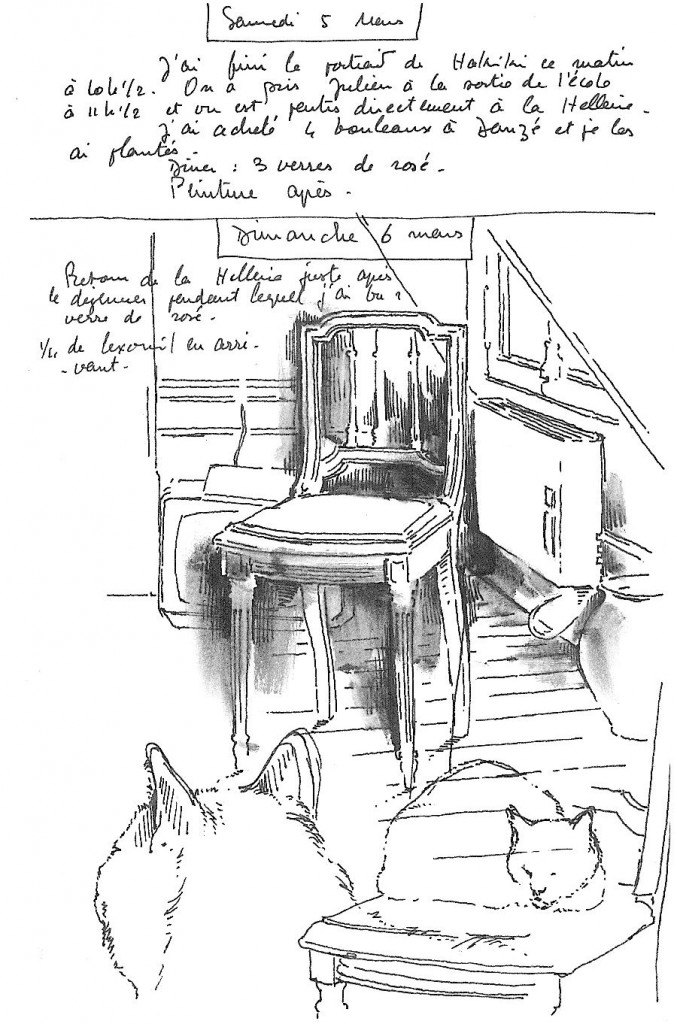 Samedi 5 Mars
J'ai fini le portrait de Halsilsi ce matin
à 10h1/2. On a pris Julien à la sortie de l'école
à 11h1/2 et on est partis directement à la Hellerie.
J'ai acheté 4 bouleaux à Danzé et je les
ai plantés.
Diner : 3 verres de rosé.
Peinture après.
Dimanche 6 mars
Retour de la Hellerie juste après
le déjeuner pendant lequel j'ai bu 2
verre de rosé.
de lexomil en arri-
-vant-